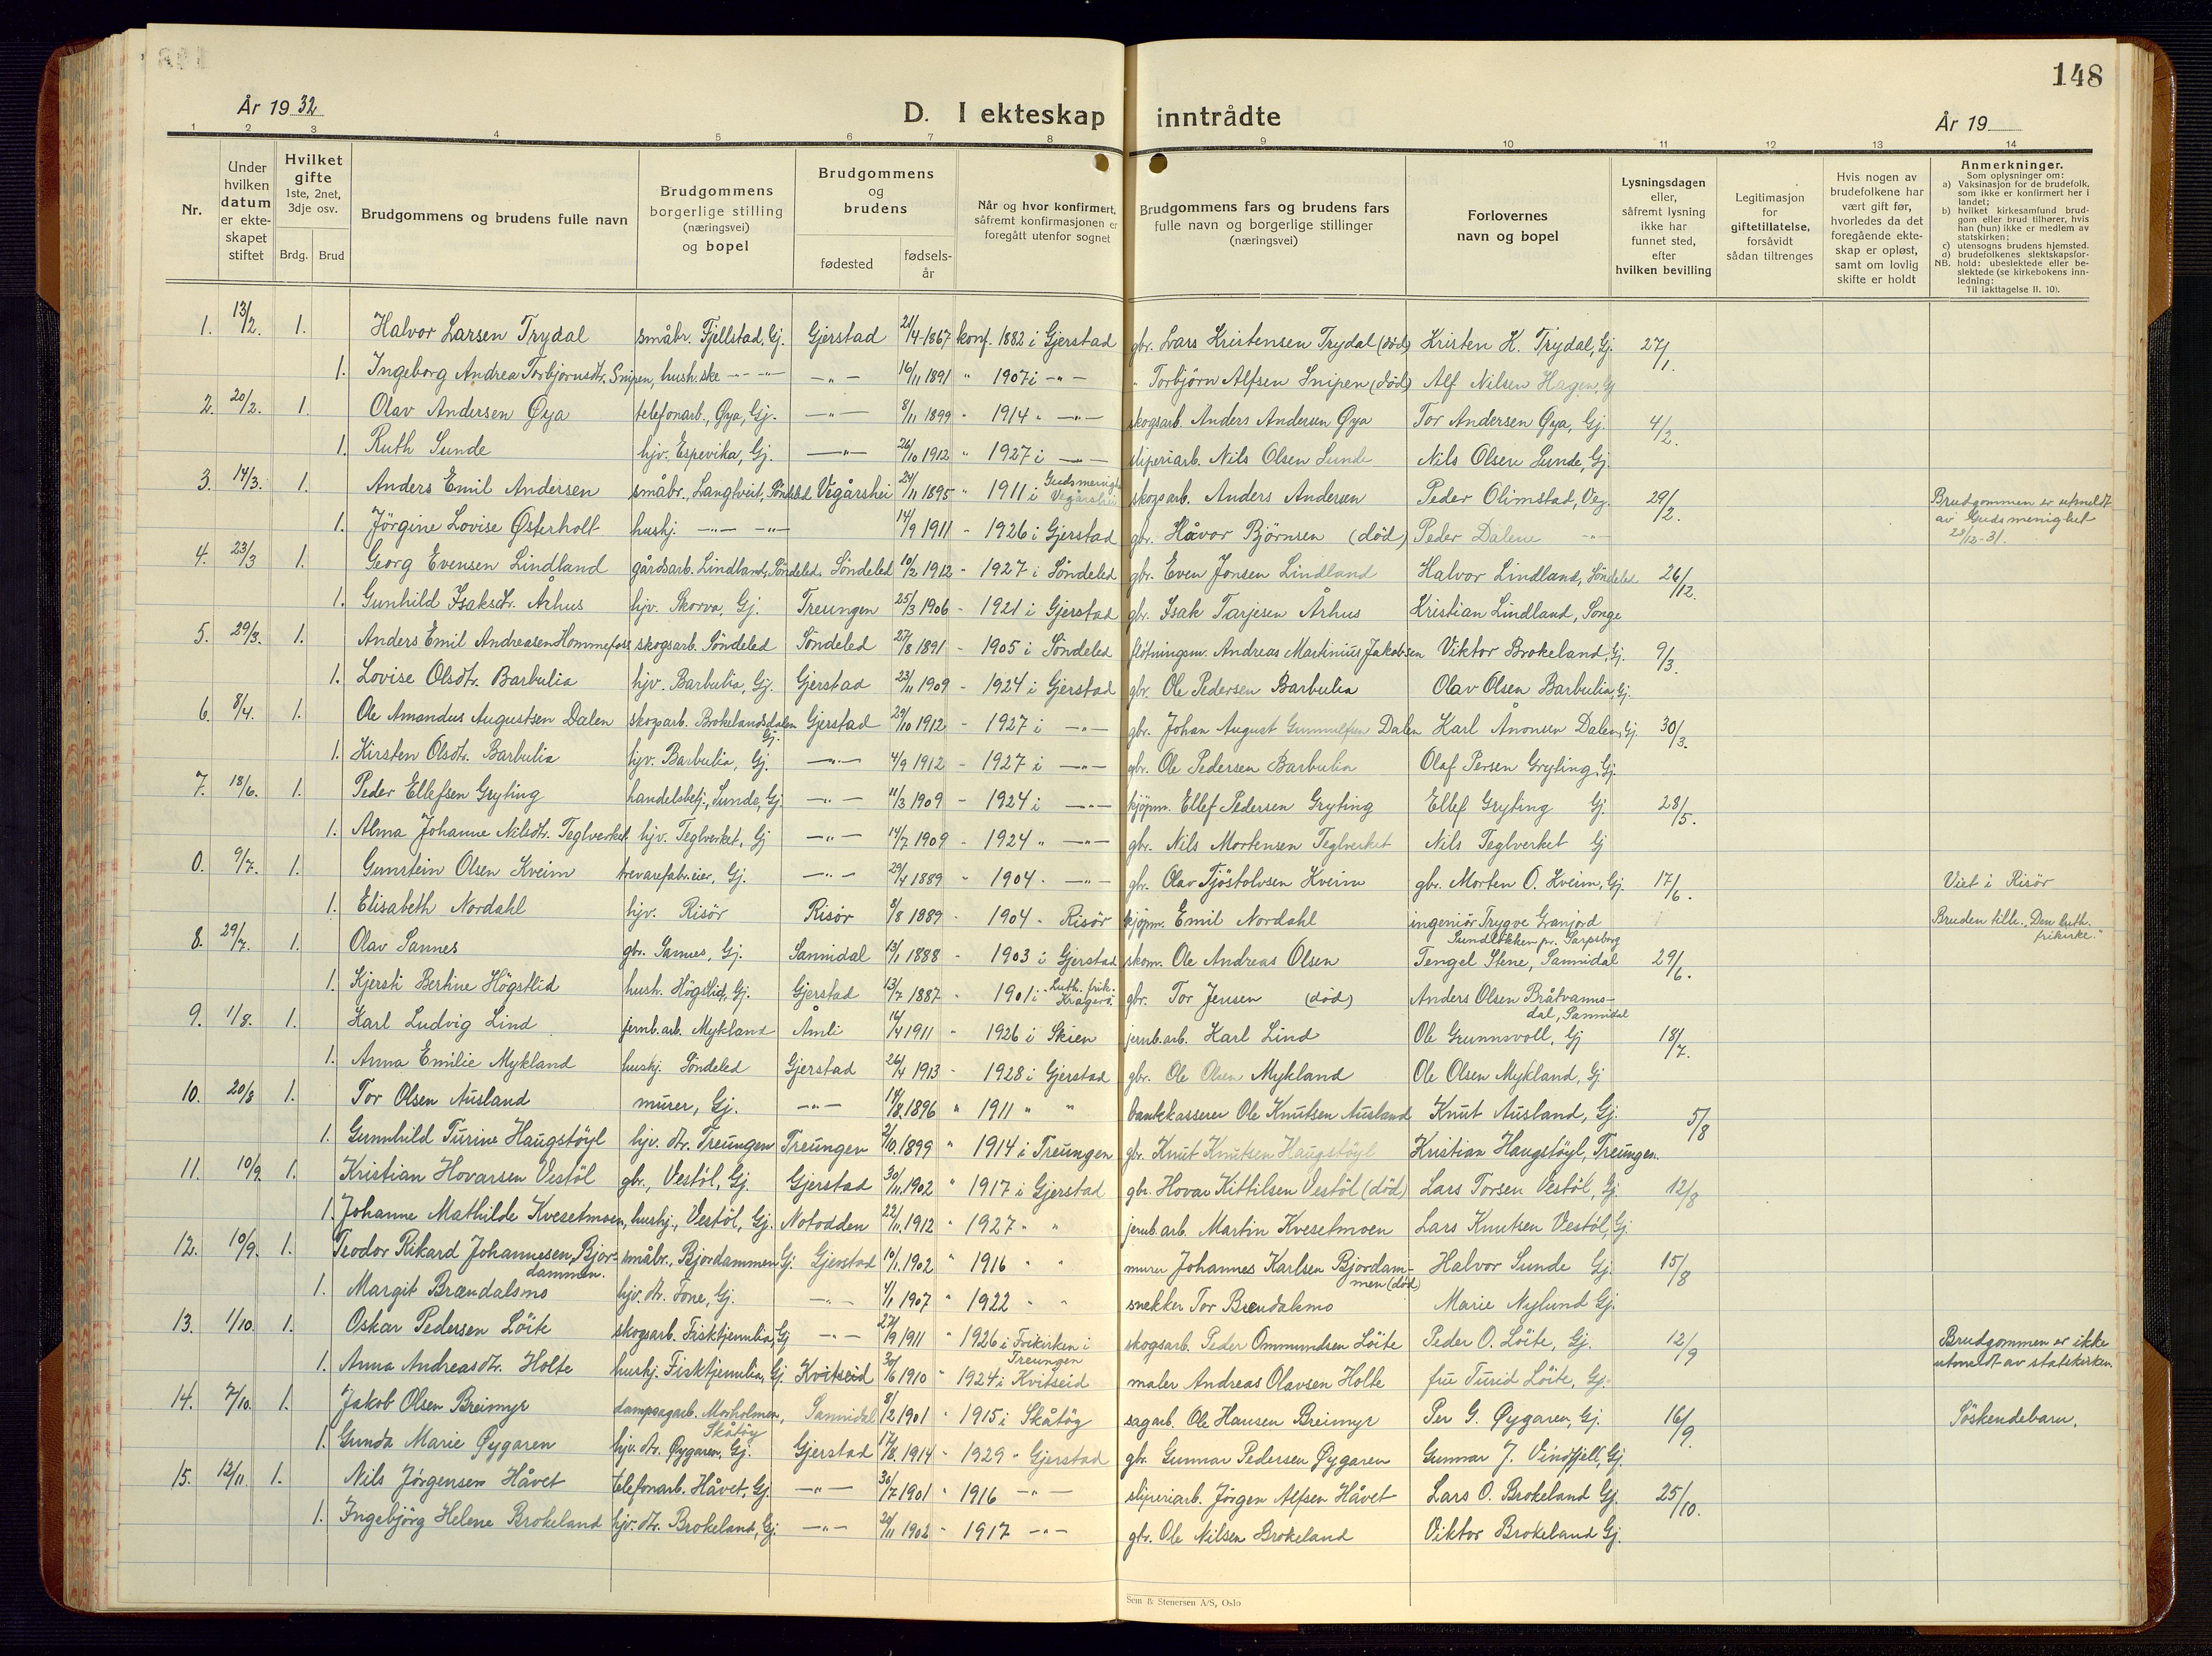 148
År 19 32
D. I ekteskap inntrådte
År 19
1 2 3 4 5 6 7 8 9 10 11 12 13 14
Nr.
Under hvilken datum er ekteskapet stiftet
Hvilket gifte 1ste, 2net, 3dje osv.
Brdg. Brud
Brudgommens og brudens fulle navn
Brudgommens borgerlige stilling (næringsvei) og bopel
Brudgommens og brudens
fødested
fødselsår
Når og hvor konfirmert, såfremt konfirmasjonen er foregått utenfor sognet
Brudgommens fars og brudens fars fulle navn og borgerlige stillinger (næringsvei)
Forlovernes navn og bopel
Lysningsdagen eller, såfremt lysning ikke har funnet sted, efter hvilken bevilling
Legitimasjon for giftetillatelse, forsåvidt sådan tiltrenges
Hvis nogen av brudefolkene har vært gift før, hvorledes da det foregående ekteskap er opløst, samt om lovlig skifte er holdt
Anmerkninger.
Som oplysninger om:
a) Vaksinasjon for de brudefolk, som ikke er konfirmert her i landet;
b) hvilket kirkesamfund brudgom eller brud tilhører, hvis han (hun) ikke er medlem av statskirken;
c) utensogns brudens hjemsted.
d) brudefolkenes slektskapsforhold: ubeslektede eller beslektede (se kirkebokens innledning:
NB. Til iakttagelse II. 10).
1. 13/2. 1. Halvor Larsen Trydal småbr. Fjellstad, Gj. Gjerstad 21/4-1867 konf. 1882 i Gjerstad gbr. Lars Kristensen Trydal (död) Kristen K. Trydal, Gj. 27/1.
1. Ingeborg Andrea Torbjørnsdtr. Snipen, hush.ske -"- -"- -"- 16/11 1891 " 1907 i -"- " Torbjörn Alfsen Snipen (död) Alf Nilsen Hagen, Gj
2. 20/2. 1. Olav Andersen Øya telefonarb., Øya, Gj. -"- 8/11 1899 " 1914 " -"- skogsarb. Anders Andersen Øya Tor Andersen Øya, Gj. 4/2.
1. Ruth Sunde hjv. Espevika, Gj. -"- 26/10 1912 " 1927 i -"- sliperiarb. Nils Olsen Sunde Nils Olsen Sunde, Gj.
3. 14/3. 1. Anders Emil Andersen småbr., Langtveit, Söndeled Vegårshei 24/11 1895 " 1911 i Gudsmenigh. Vegårshei skogsarb. Anders Andersen Peder Olimstad, Veg. 29/2. Brudgommen er utmeldt av Gudsmenighet 28/12-31.
1. Jörgine Lovise Østerholt hushj. -"- -"- 14/9 1911 - 1926 i Gjerstad gbr. Håvor Björnsen (död) Peder Dalene -"-
4. 23/3 1. Georg Evensen Lindland gårdsarb. Lindland, Söndeled. Söndeled 10/2 1912 - 1927 i Söndeled gbr. Even Jonsen Lindland Halvor Lindland, Söndeled 26/12.
1. Gunhild Isaksdtr. Århus hjv. Skorva, Gj. Treungen 25/3 1906 - 1921 i Gjerstad gbr. Isak Tarjesen Århus Kristian Lindland, Songe
5. 29/3. 1. Anders Emil Andreasen Hommefoss skogsarb. Söndeled Söndeled 27/8 1891 - 1905 i Söndeled flötningsm. Andreas Martinius Jakobsen Viktor Brokeland, Gj. 9/3.
1. Lovise Olsdtr. Barbulia hjv. Barbulia, Gj. Gjerstad 23/11 1909 - 1924 i Gjerstad gbr. Ole Pedersen Barbulia Olav Olsen Barbulia, Gj.
6. 8/4. 1. Ole Amandus Augustsen Dalen skogsarb. Brokelandsdalen Gj. Gjerstad 29/10 1912 - 1927 i -"- gbr. Johan August Gunnulfsen Dalen KarlÅnonsen Dalen, Gj. 30/3.
1. Kirsten Olsdtr. Barbulia hjv. Barbulia, Gj. -"- 4/9 1912 - 1927 i -"- gbr. Ole Pedersen Barbulia Olaf Persen Gryting, Gj.
7. 18/6. 1. Peder Ellefsen Gryting handelsbetj., Sunde, Gj. -"- 11/3 1909 - 1924 i -"- kjöpm. Ellef Pedersen Gryting Ellef Gryting Gj. 28/5.
1. Alma Johanne Nilsdtr. Teglverket hjv. Teglverket, Gj -"- 14/7 1909 - 1924 " -"- gbr. Nils Mortensen Teglverket Nils Teglverket Gj
0. 9/7. 1. Gunstein Olsen Kveim trevarefabr.eier, Gj. -"- 29/4 1889 - 1904 - -"- gbr. Olav Tjöstolvsen Kveim gbr. Morten O. Kveim, Gj. 17/6. Viet i Risör
1. Elisabeth Nordahl hjv. Risör Risör 8/8 1889 - 1904 - Risör kjöpm. Emil Nordahl ingeniör Trygve Granjord Sundlökken pr. Sarpsborg Bruden tilh. "Den luth. frikirke."
8. 29/7. 1. Olav Sannes gbr. Sannes, Gj. Sannidal 13/1 1888 - 1903 i Gjerstad skom. Ole Andreas Olsen Tengel Stene, Sannidal 29/6.
1. Kjersti Berthine Högstlid hush. Högstlid, Gj. Gjerstad 13/7 1887 - 1901 i Luth. frik. Kragerö. gbr. Tor Jensen (död) Anders Olsen Bråtvannsdal, Sannidal
9. 1/8. 1. Karl Ludvig Lind jernb.arb. Mykland Åmli 14/4 1911 - 1926 i Skien jernb.arb. Karl Lind Ole Grunnsvoll, Gj 18/7.
1. Anna Emilie Mykland hushj. Söndeled Gjerstad 26/4 1913 - 1928 i Gjerstad gbr. Ole Olsen Mykland Ole Olsen Mykland, Gj
10. 20/8 1. Tor Olsen Ausland murer, Gj. -"- 14/8. 1896 " 1911 " " bankkasserer Ole Knutsen Ausland Knut Ausland, Gj. 5/8
1. Gunnhild Turine Haugstöyl hjv. dtr. Treungen Treungen 2/10. 1899 " 1914 i Treungen gbr. Knut Knutsen Haugstöyl Kristian Haugstöyl, Treungen.
11. 10/9. 1. Kristian Hovarsen Vestöl gbr., Vestöl, Gj. Gjerstad 30/11. 1902 " 1917 i Gjerstad gbr. Hovar Kittilsen Vestöl (död) Lars Torsen Vestöl, Gj. 12/8
1. Johanne Mathilde Kvesetmoen, hushj., Vestöl, Gj. Notodden 22/11. 1912 " 1927 - " jernb.arb. Martin Kvesetmoen Lars Knutsen Vestöl, Gj.
12. 10/9. 1. Teodor Rikard Johannesen, Bjordammen. småbr., Bjordammen Gj. Gjerstad 10/1. 1902 " 1916 " " murer Johannes Karlsen Bjordammen (död) Halvor Sunde Gj 15/8
1. Margit Brændalsmo hjv. dtr. Fone, Gj. -"- 4/1 1907 " 1922 " " snekker Tor Brendalsmo Marie Nylund Gj.
13. 1/10. 1. Oskar Pedersen Löite skogsarb. Fisktjennlia, Gj -"- 27/9 1911 " 1926 i Frikirken i Treungen skogsarb. Peder Ommundsen Löite Peder O. Löite, Gj. 12/9 Brudgommen er ikke utmeldt av statskirken.
1. Anna Andreasdtr. Holte hushj. Fisktjennlia, Gj Kvitseid 30/6 1910 " 1924 i Kvitseid maler Andreas Olavsen Holte frue Turid Löite, Gj.
14. 7/10. 1. Jakob Olsen Breimyr dampsagarb. Morholmen, Skåtöy Sannidal 8/2 1901 " 1915 i Skåtöy sagarb. Ole Hansen Breimyr Per G. Øygaren, Gj. 16/9. Söskendebarn.
1. Gunda Marie Øygaren hjv. dtr. Øygaren, Gj. Gjerstad 17/8. 1914 - 1929 - Gjerstad gbr. Gunnar Pedersen Øygaren Gunnar J. Vindfjell, Gj.
15. 12/11. 1. Nils Jörgensen Håvet telefonarb. Håvet, Gj -"- 30/7 1901 " 1916 -"- sliperiarb. Jörgen Alfsen Håvet Lars O. Brokeland Gj. 25/10.
1. Ingebjörg Helene Brokeland hjv. dtr. Brokeland, Gj. -"- 20/11 1902 - 1917 -"- gbr. Ole Nilsen Brokeland Viktor Brokeland Gj.
Sem & Stenersen A/S, Oslo